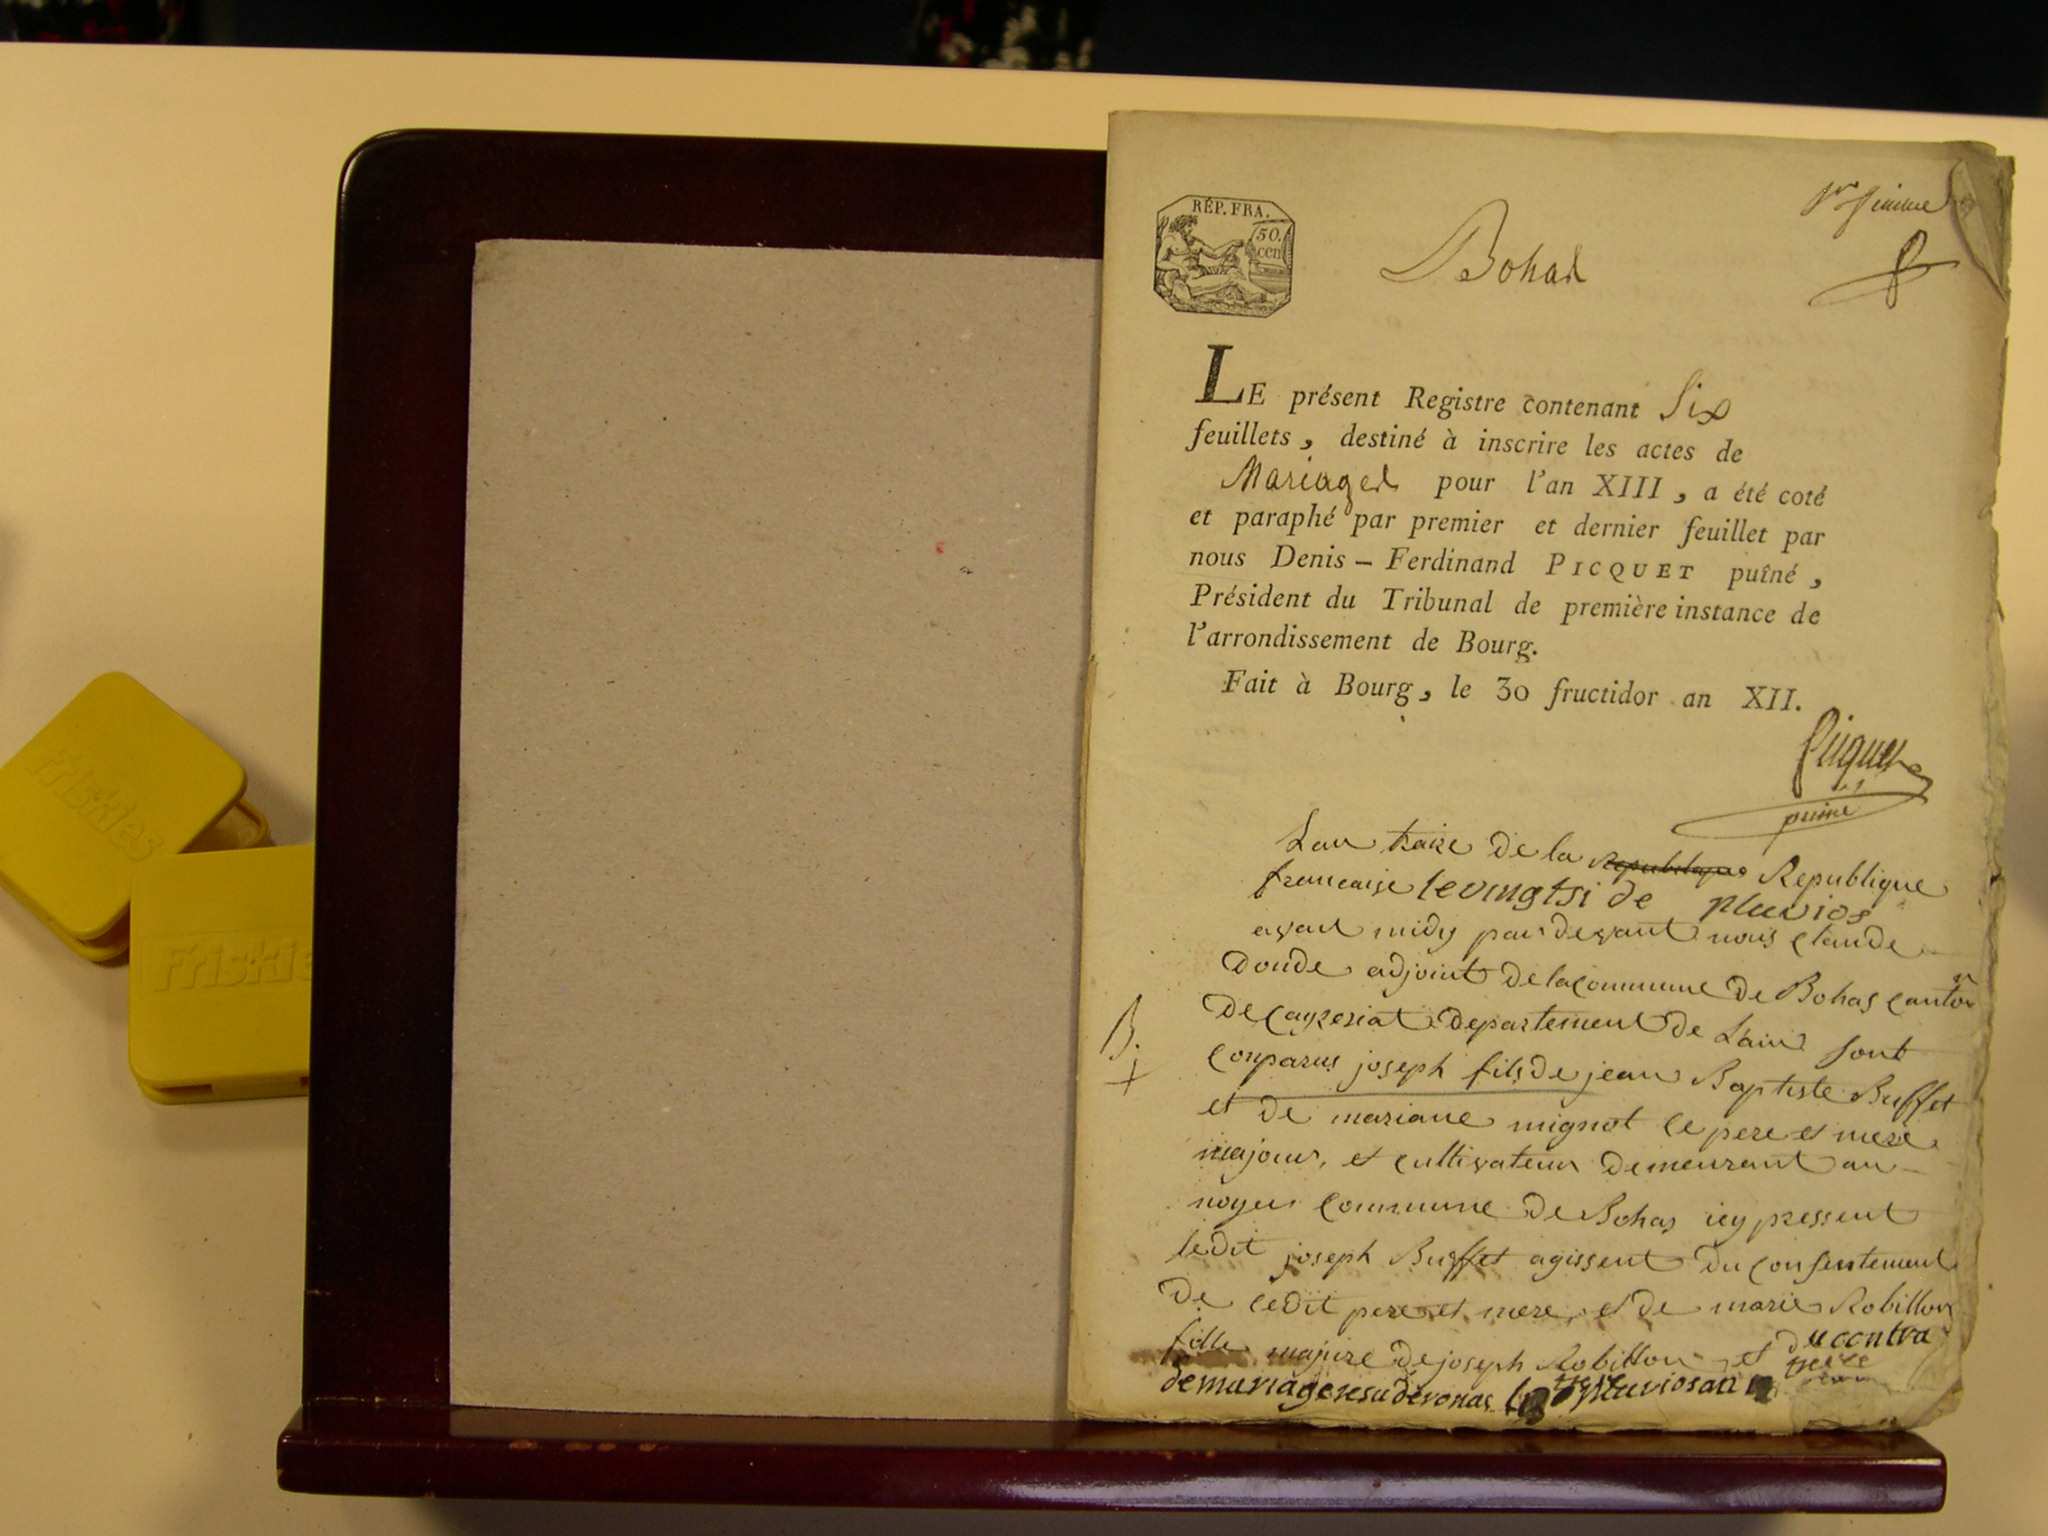 RÉP. FRA.
50.
cen
Bohas
LE présent Registre contenant Six
feuillets, destiné à inscrire les actes de
Mariages pour l'an XIII, a été coté
et paraphé par premier et dernier feuillet par
nous Denis – Ferdinand PICQUET puîné,
Président du Tribunal de première instance de
l'arrondissement de Bourg.
Fait à Bourg, le 30 fructidor an XII.
Picquet
puiné
Lan traize de la Republique Republique
francaise le vingtsi de pluvios
avan midy par devant nous claude
Donde adjoint de la commune de Bohas canton
De Cayzeriat departement de Lain sont
conparus joseph fils de jean Baptiste Buffet
et de mariane mignot ce pere et mere
majour, et cultivateur demeurant au
noyer commune de Bohas icy pressent
ledit joseph Buffet agissent du consentement
De cedit pere et mere, et de marie Robillon
fille majure de joseph Robillon et du contra
de mariage resu devonas pluviosan
B.
+
Friskies
Friskie